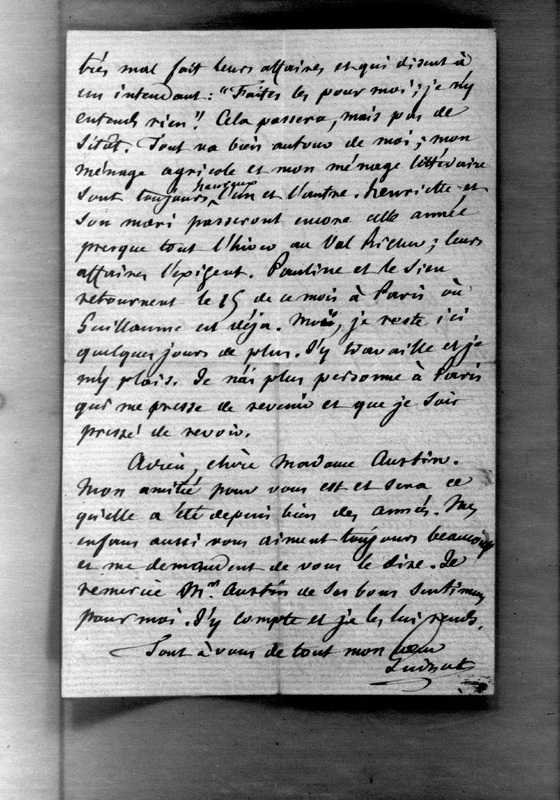 très mal fait leurs affaires et qui disent à
un intendant : "Faites les pour moi ; je n'y
entends rien". Cela passera, mais pas de
sitôt. Tout va bien autour de moi ; mon
ménage agricole et mon ménage littéraire
sont toujours heureux l'un et l'autre. Henriette et
son mari passeront encore cette année
presque tout l'hiver au Val Richer ; leurs
affaires l'exigent. Pauline et le sien
retournent le 15 de ce mois à Paris où
Guillaume est déja. Moi, je reste ici
quelques jours de plus. J'y travaille et je
m'y plais. Je n'ai plus personne à Paris
qui me presse de revenir et que je sois
pressé de revoir.
Adieu, chère Madame Austin.
Mon amitié pour vous est et sera ce
qu'elle a été depuis bien des années. Mes
enfans aussi vous aiment toujours beaucoup
et me demandent de vous le dire. Je
remercie Mr. Austin de ses bons sentimens
pour moi. J'y compte et je les lui rends.
Tout à vous de tout mon coeur
Guizot